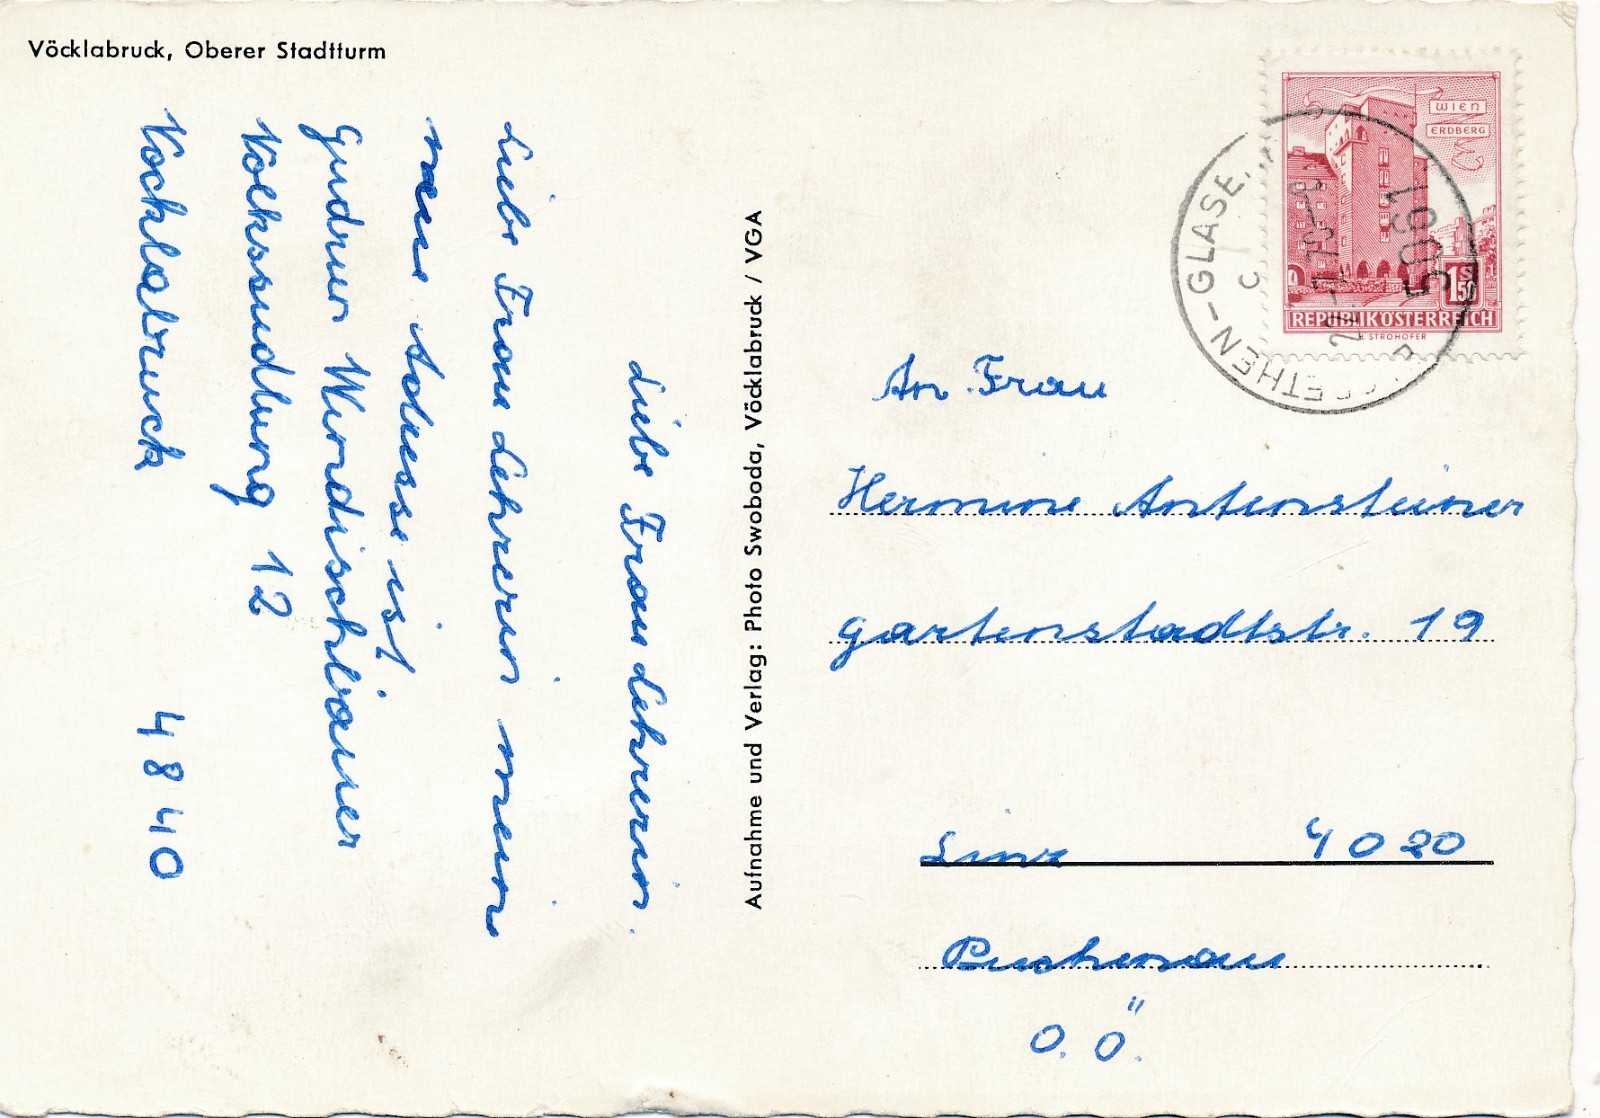 Vöcklabruck, Oberer Stadtturm
Liebe Frau Lehrerin.
Liebe Frau Lehrerin mein
neue Adresse ist
Gudrun Windischbauer
Volkssiedlung 12
Vöcklabruck 4840
Aufnahme und Verlag: Photo Swoboda, Vöcklabruck / VGA
WIEN
ERDBERG
1 S 50
REPUBLIK ÖSTERREICH
H. STROHOFER
5061
20.-1.75-8
ETHEN-GLASE
C
An Frau
Hermine Antensteiner
Gartenstadtstr. 19
Linz 4020
Puchenau
O. Ö.